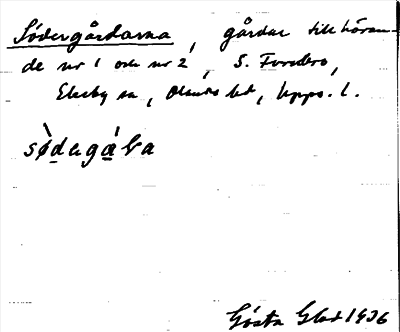 Södergårdarna, gårdar tillhöran-
de nr 1 och nr 2, S. Forsbro,
Ekeby sn, Olands hd, Upps. l.
sø̀degáɽa
Gösta Glad 1936